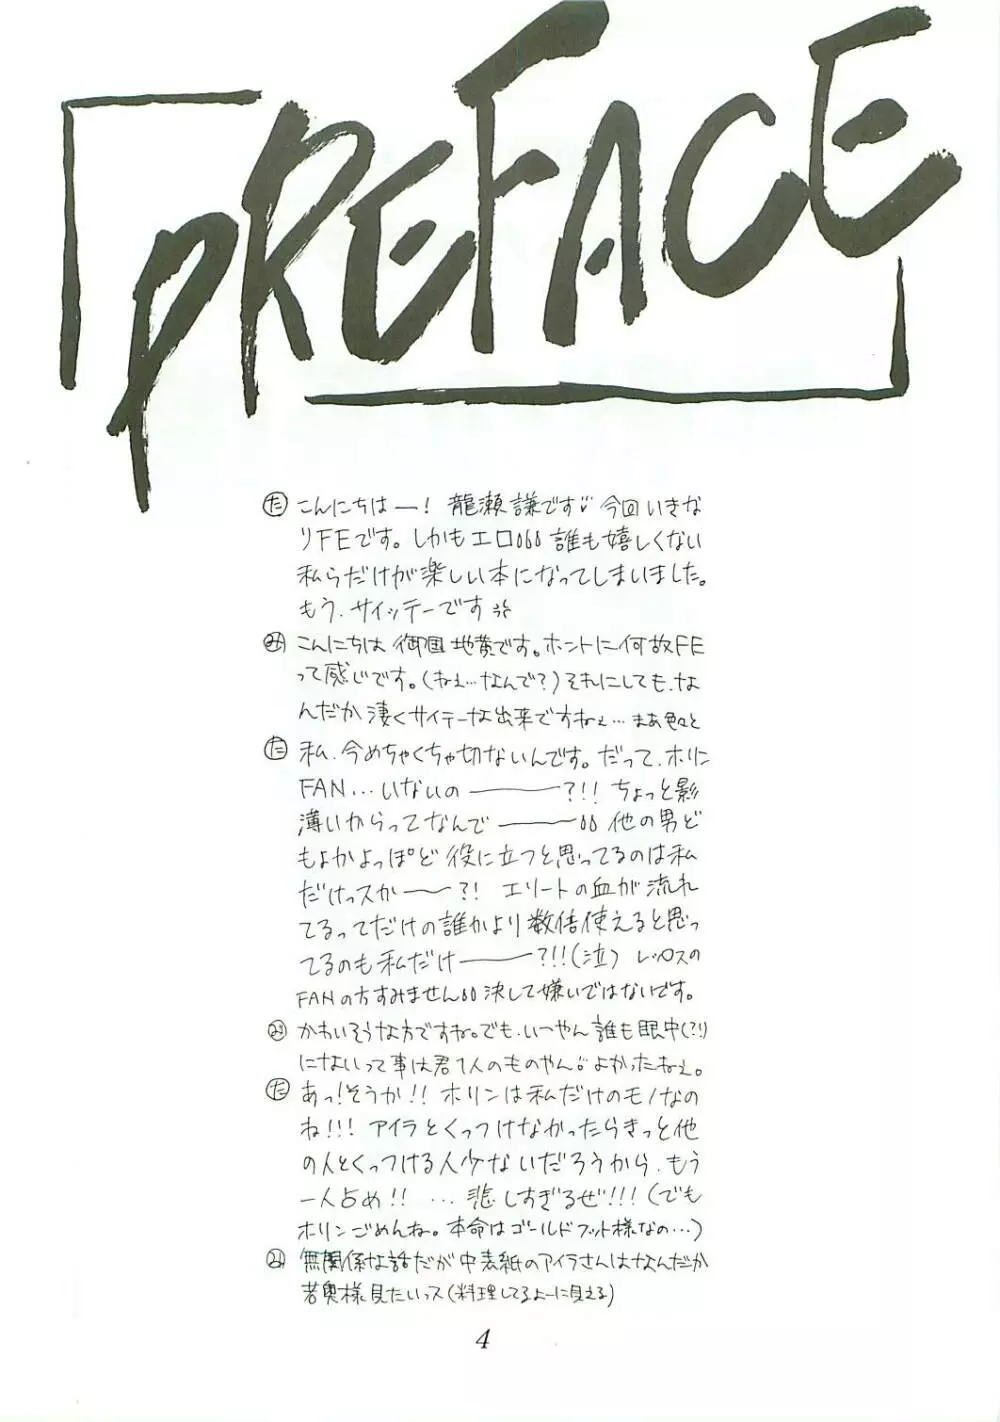 PREFACE
た こんにちはー! 龍瀬謙です 今回いきな
りFEです。しかもエロ 誰も嬉しくない
私らだけが楽しい本になってしまいました。
もう、サイッテーです
み こんにちは 御国 地黄です。ホントに何故FE
って感じです。(ねぇ…なんで?)それにしても、な
んだか凄くサイテーな出来ですねぇ… まあ色々と
た 私、今めちゃくちゃ切ないんです。だって、ホリン
FAN…いないの――?!! ちょっと影
薄いからってなんで―― 他の男ど
もよかよっぽど役に立つと思ってるのは私
だけっスか――?! エリートの血が流れ
てるってだけの誰かより数倍使えると思っ
てるのも私だけ――?!!(泣) レックスの
FANの方すみません 決して嫌いではないです。
み かわいそうな方ですね。でも、いーやん誰も眼中(?!)
にないって事は君1人のものやん よかったねぇ。
た あっ!そうか!! ホリンは私だけのモノなの
ね!!! アイラとくっつけなかったらきっと他
の人とくっつける人少ないだろうから、もう
一人占め!! …悲しすぎるぜ!!!(でも
ホリンごめんね。本命はゴールドフット様なの…)
み 無関係な話だが中表紙のアイラさんはなんだか
若奥様見たいっス(料理してるよーに見える)
4